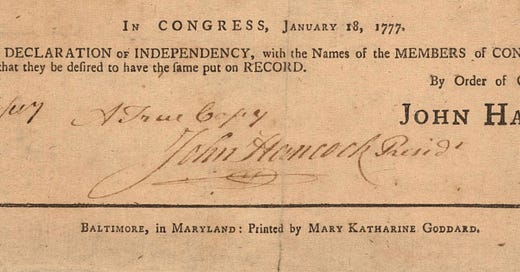 IN CONGRESS, JANUARY 18, 1777.
DECLARATION OF INDEPENDENCY, with the Names of the MEMBERS of CON
that they be desired to have the same put on RECORD.
By Order of C
JOHN HA
A True Copy
John Hancock Presidt
BALTIMORE, in MARYLAND: Printed by MARY KATHARINE GODDARD.